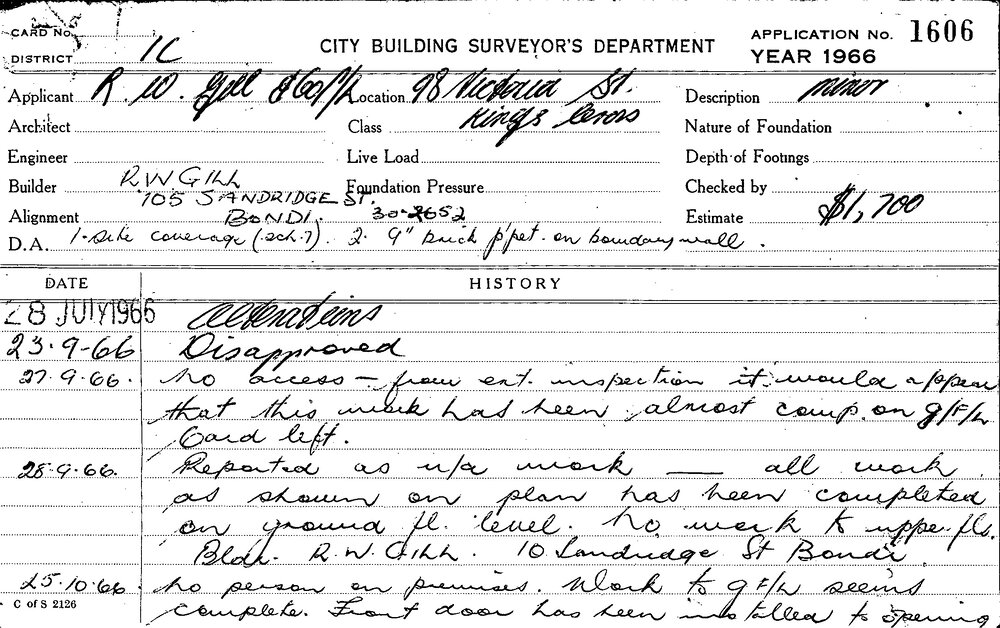 CARD No.
DISTRICT 1C
CITY BUILDING SURVEYOR'S DEPARTMENT
APPLICATION No. 1606
YEAR 1966
Applicant R. W. Gill & Co P/L Location 98 Victoria St. Description minor
Architect Class Kings Cross Nature of Foundation
Engineer Live Load Depth of Footings
Builder R.W GILL Foundation Pressure Checked by
105 SANDRIDGE ST.
Alignment BONDI. 30-2652 Estimate $1,700
D.A. 1. Site coverage (sch. 7). 2. 9" brick p'pet. on boundary wall.
DATE HISTORY
28 JULY 1966 Alterations
23-9-66 Disapproved
27.9.66. No access - from ext. inspection it would appear
that this work has been almost comp. on g/F/L
Card left.
28.9.66. Reported as u/a work — all work
as shown on plan has been completed
on ground fl. level. No work to upper fls.
Bldr. R.W. GILL. 10 Sandridge St Bondi
25.10.66 No person on premises. Work to g F/L seems
C of S 2126
complete. Front door has been installed to opening